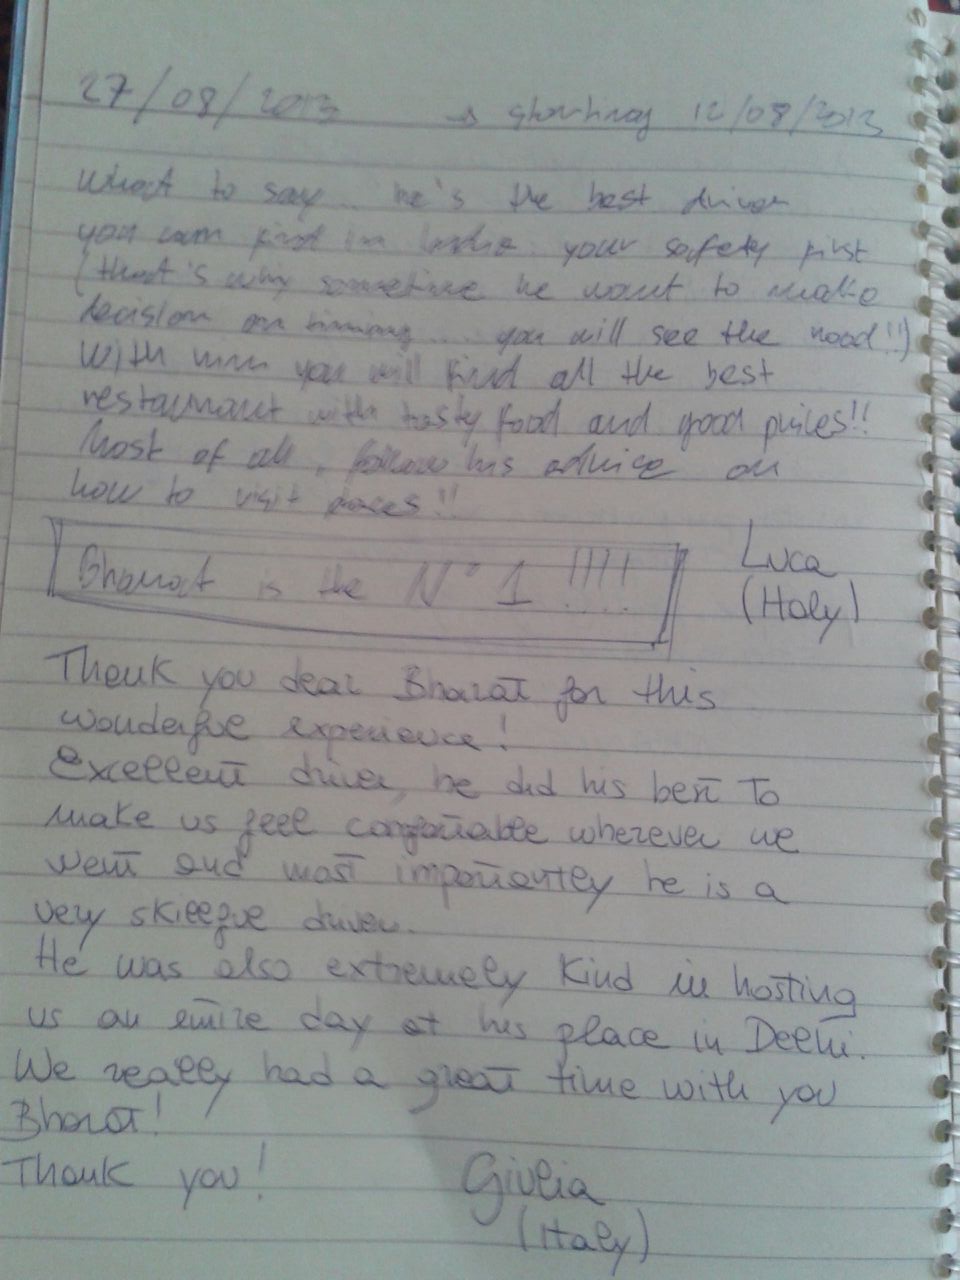 27/08/2013 → starting 12/08/2013
What to say... he's the best driver
you can find in India. your safety first
(that's why sometime he want to make
decision on timing.... you will see the road!!)
With him you will find all the best
restaurant with tasty food and good prices!!
Most of all, follow his advice on
how to visit places!!
Bharat is the N° 1 !!!!
Luca
(Italy)
Thank you dear Bharat for this
wonderful experience!
Excellent driver, he did his best to
make us feel comfortable wherever we
went and most importantly he is a
very skillful driver.
He was also extremely kind in hosting
us an entire day at his place in Delhi.
We really had a great time with you
Bharat!
Thank you!
Giulia
(Italy)